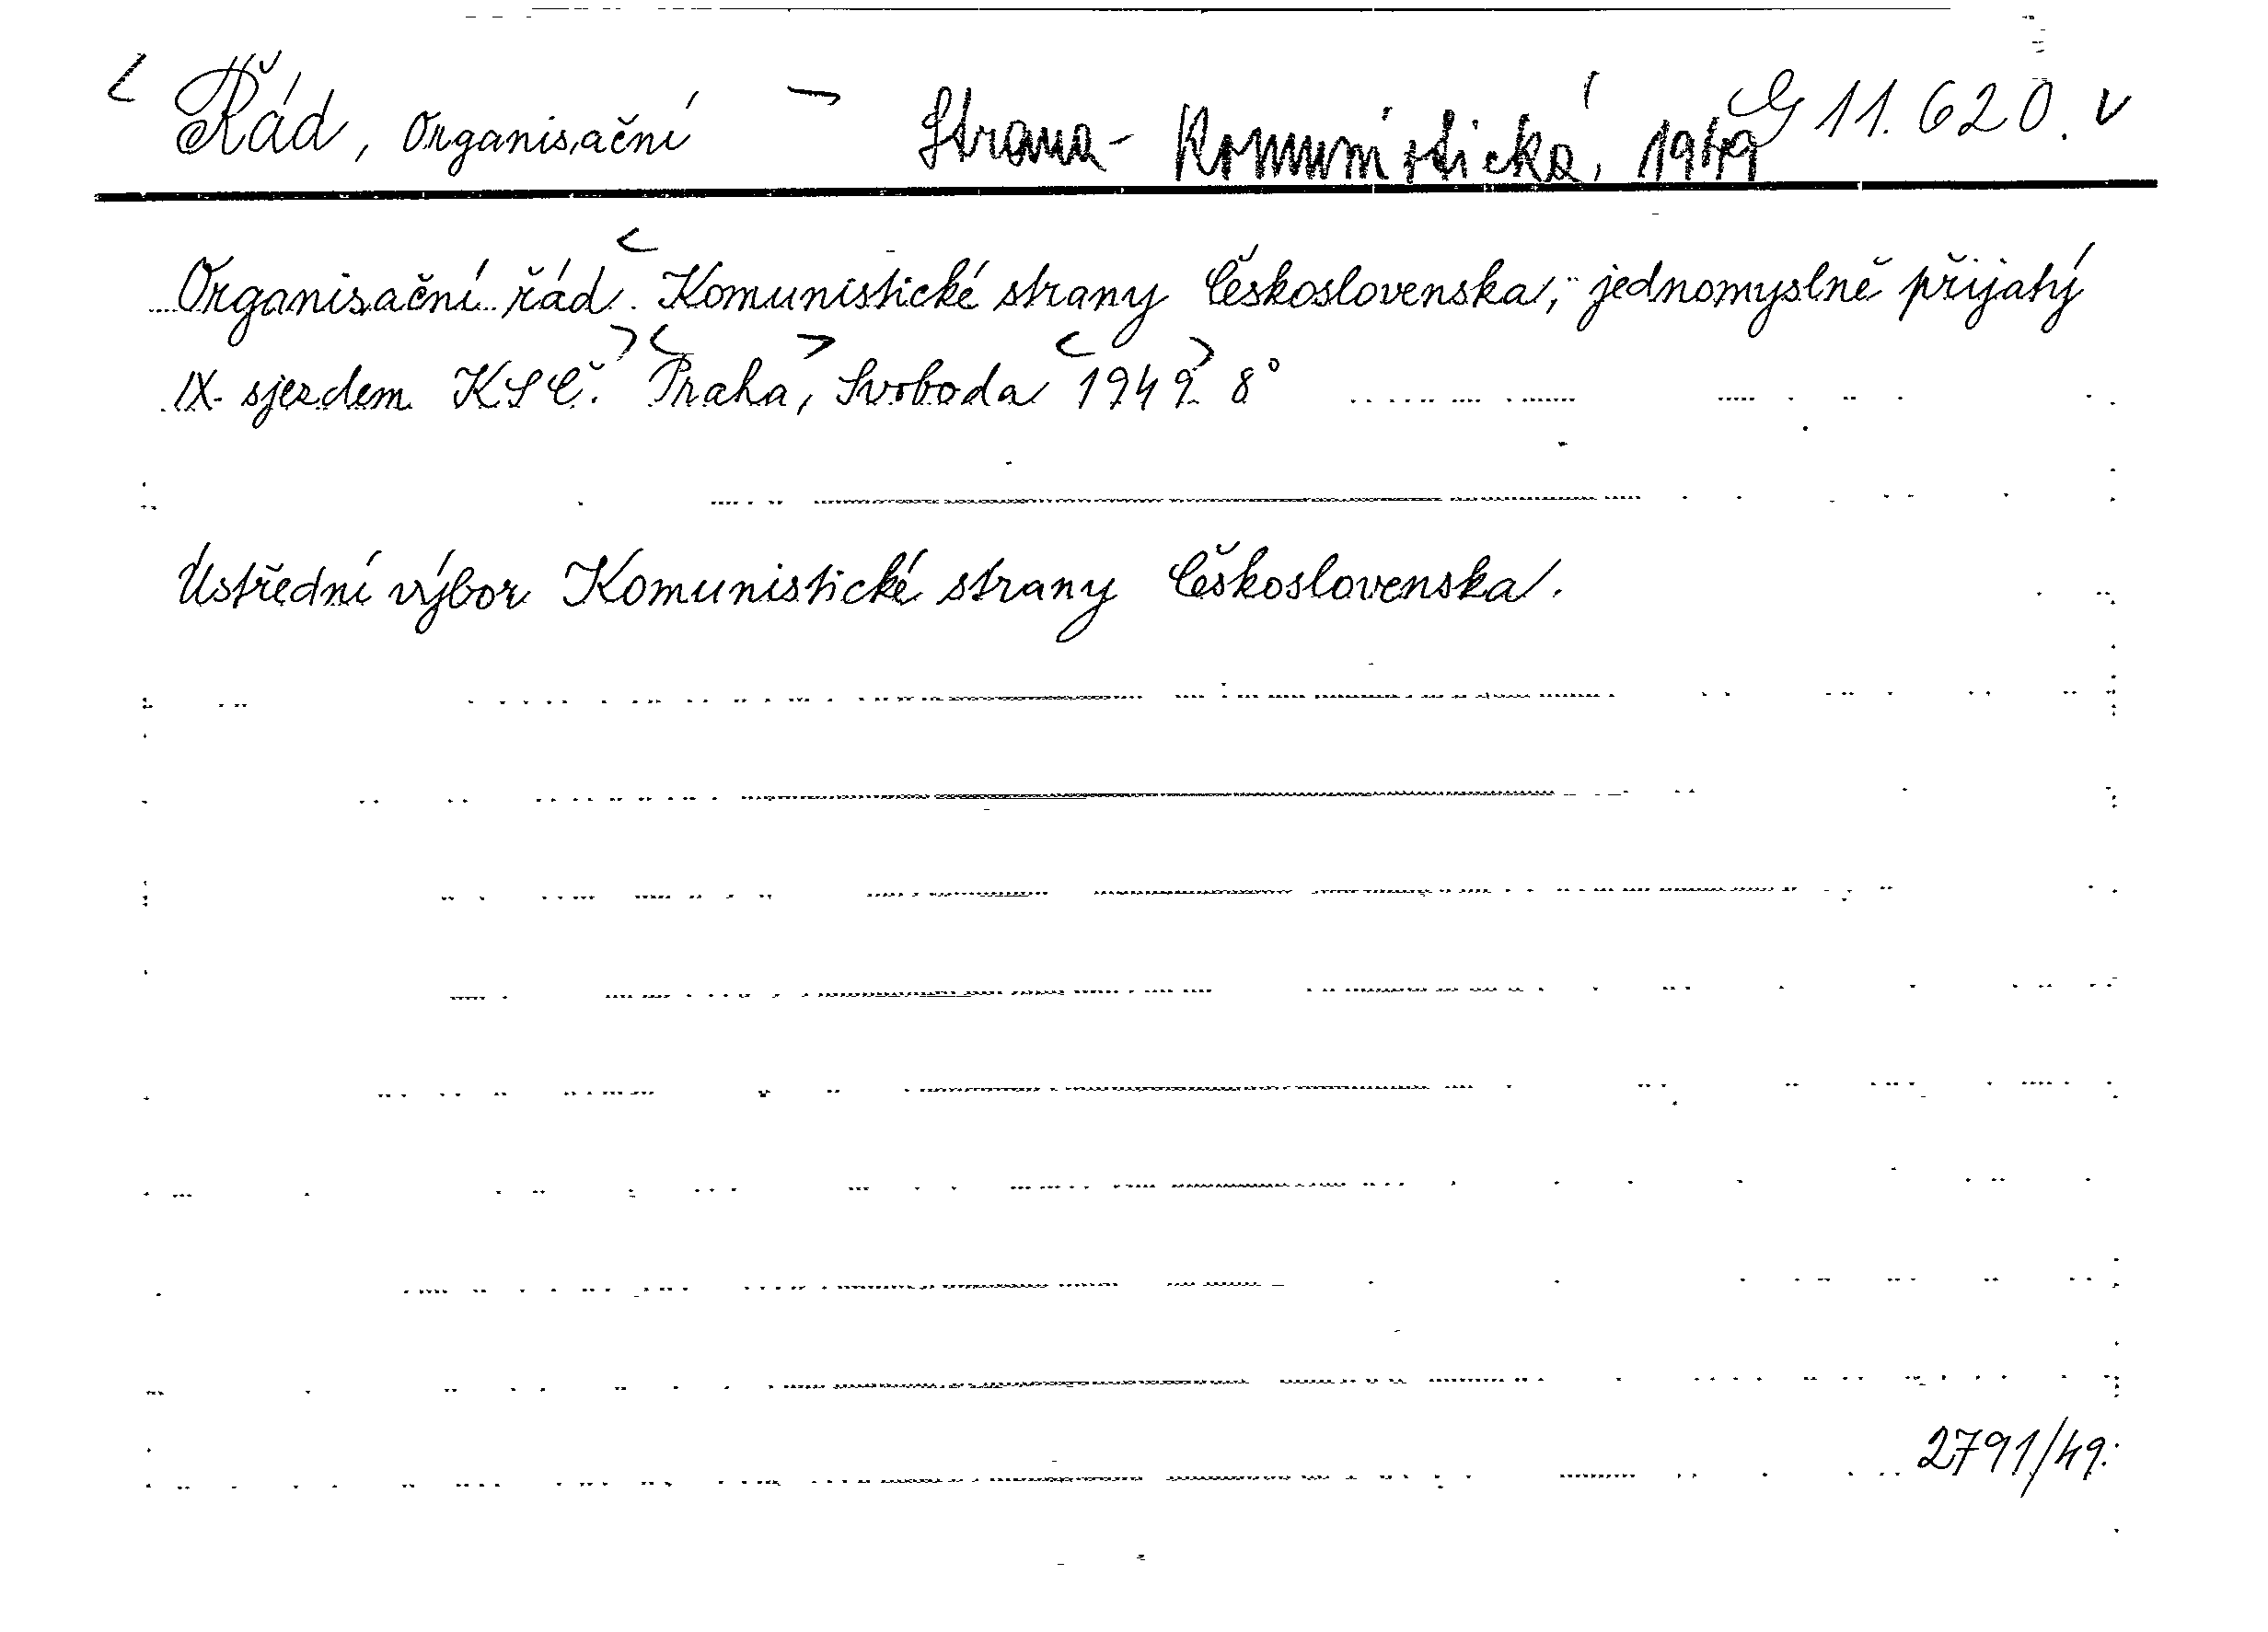 < Řád, Organisační > Strana - Komunistická, 1949 G 11.620. v
Organisační řád < Komunistické strany Československa, jednomyslně přijatý
IX. sjezdem KSČ. > < Praha, > Svoboda < 1949 > 8°
Ústřední výbor Komunistické strany Československa.
2791/49.